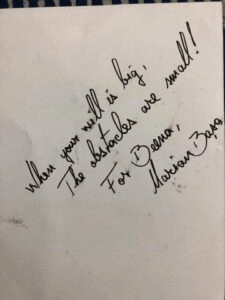 When your will is big,
The obstacles are small!
For Beena,
Marian Baze